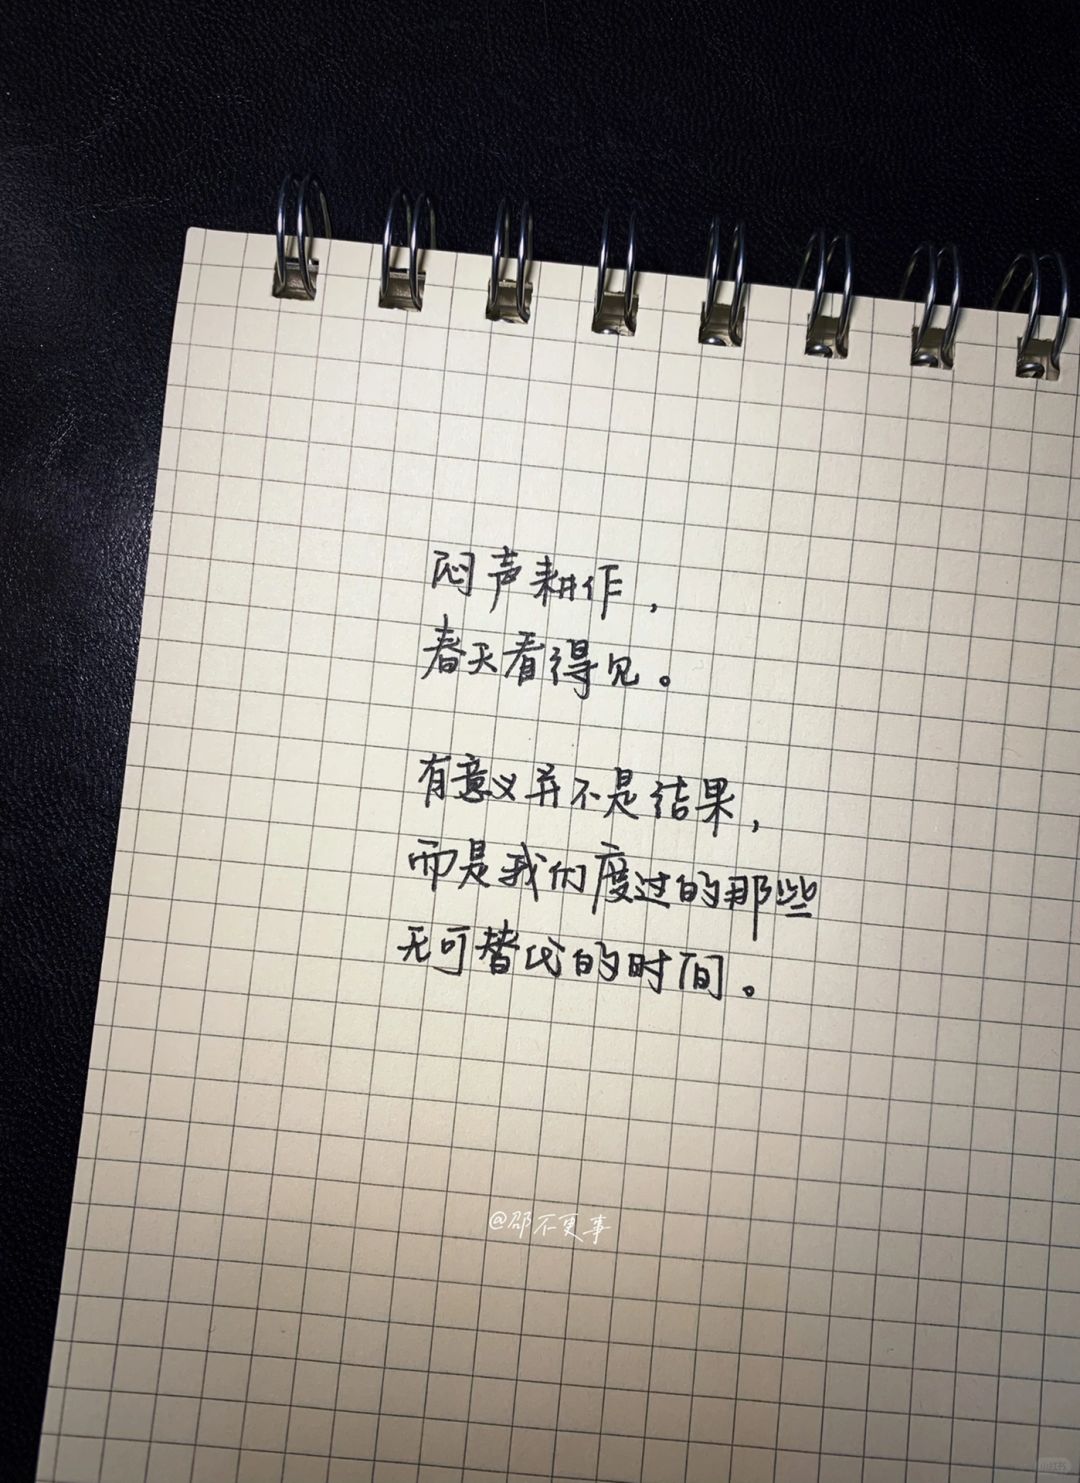 闷声耕作，
春天看得见。
有意义并不是结果，
而是我们度过的那些
无可替代的时间。
@邵不更事
小红书